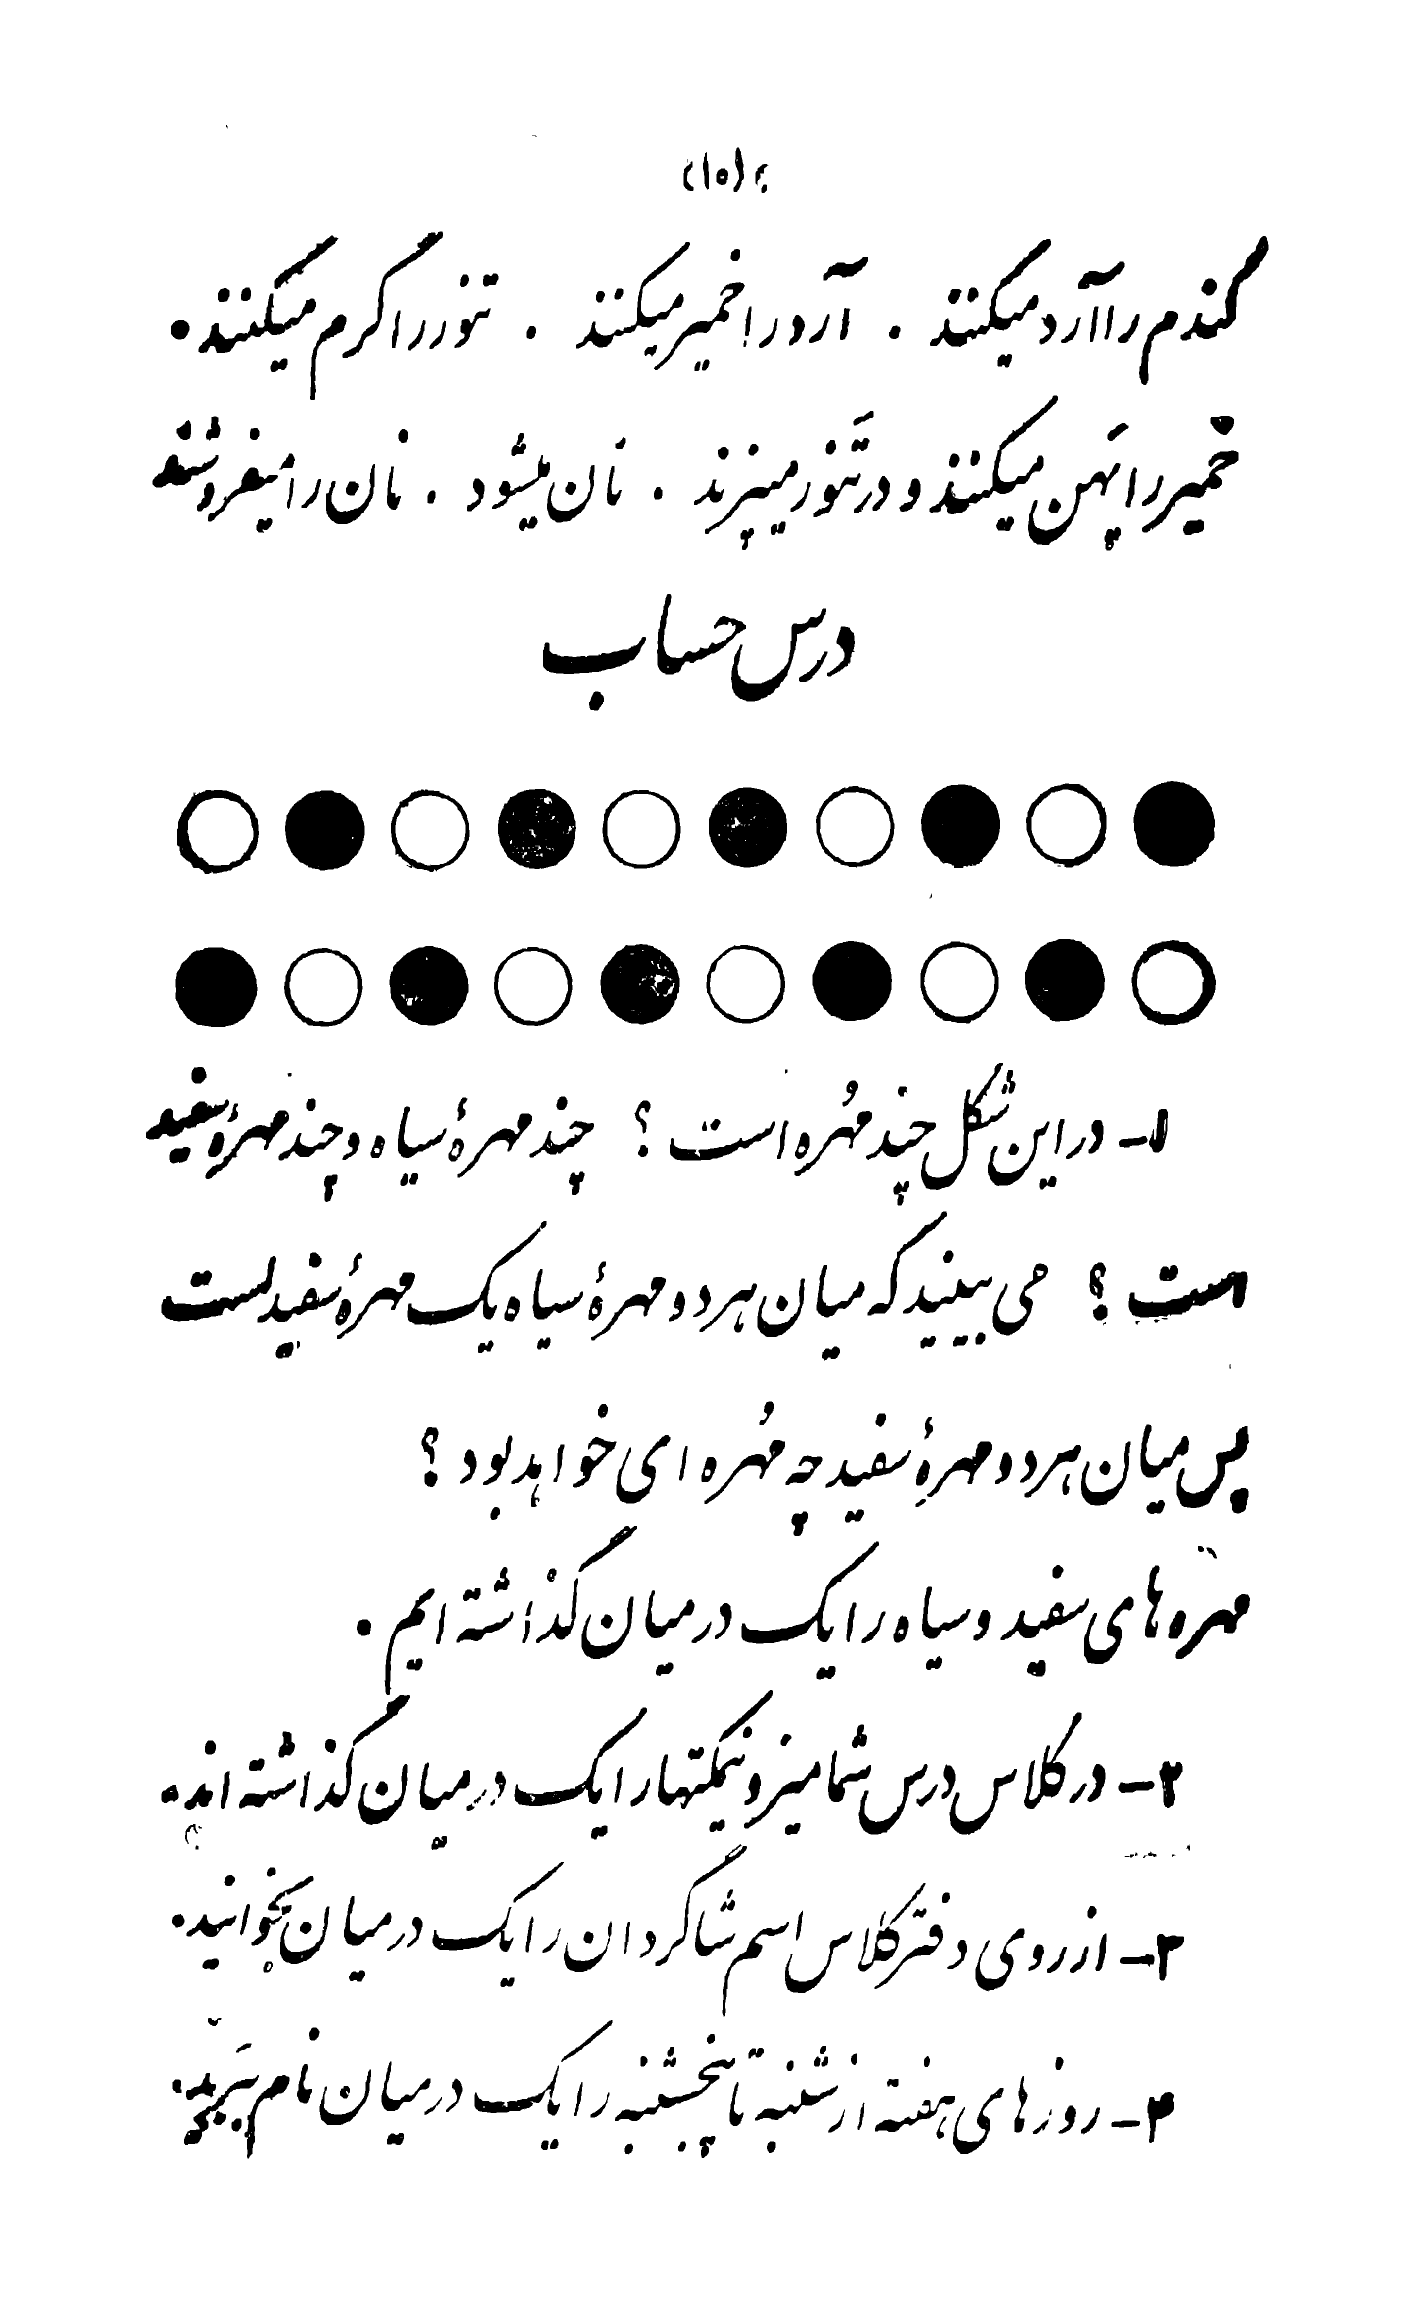 (۱۰)
گندم را آرد میکنند . آرد را خمیر میکنند . تنور را گرم میکنند .
خمیر را پَهن میکنند و در تَنور میپزند . نان میشود . نان را میفروشند
درس حساب
۱- در این شکل چند مُهره است ؟ چند مهرهٔ سیاه و چند مهرهٔ سفید
است ؟ می بینید که میان هر دو مهرهٔ سیاه یک مهرهٔ سفید است
پس میان هر دو مهرهٔ سفید چه مُهره ای خواهد بود ؟
مهره های سفید و سیاه را یک در میان گذاشته ایم .
۲- در کلاس درس شما میز و نیمکتها را یک در میان گذاشته اند .
۳- از روی دفتر کلاس اسم شاگردان را یک در میان بخوانید .
۴- روزهای هفته از شنبه تا پنجشنبه را یک در میان نام بِبَرید .